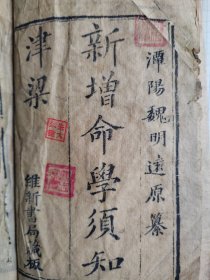 潭陽魏明遠原纂
新增命學須知
津梁
維新書局藏板